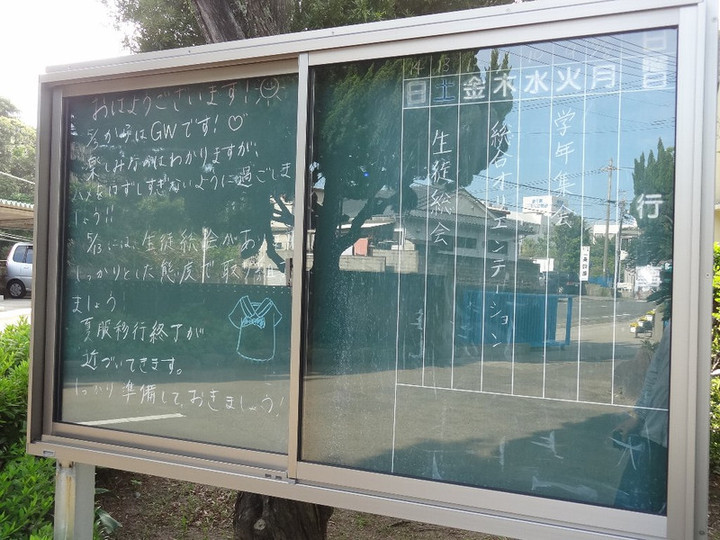 おはようございます!
5/3からはGWです!♡
楽しみなのはわかりますが、
ハメをはずしすぎないように過ごしま
しょう!!
5/13には、生徒総会があ
しっかりとした態度で取り組
ましょう!
夏服移行終了が
近づいてきます。
しっかり準備して、おきましょう!
日曜
行
月
火
学年集会
水
木
総合オリエンテーション
金
13
土
生徒総会
14
日